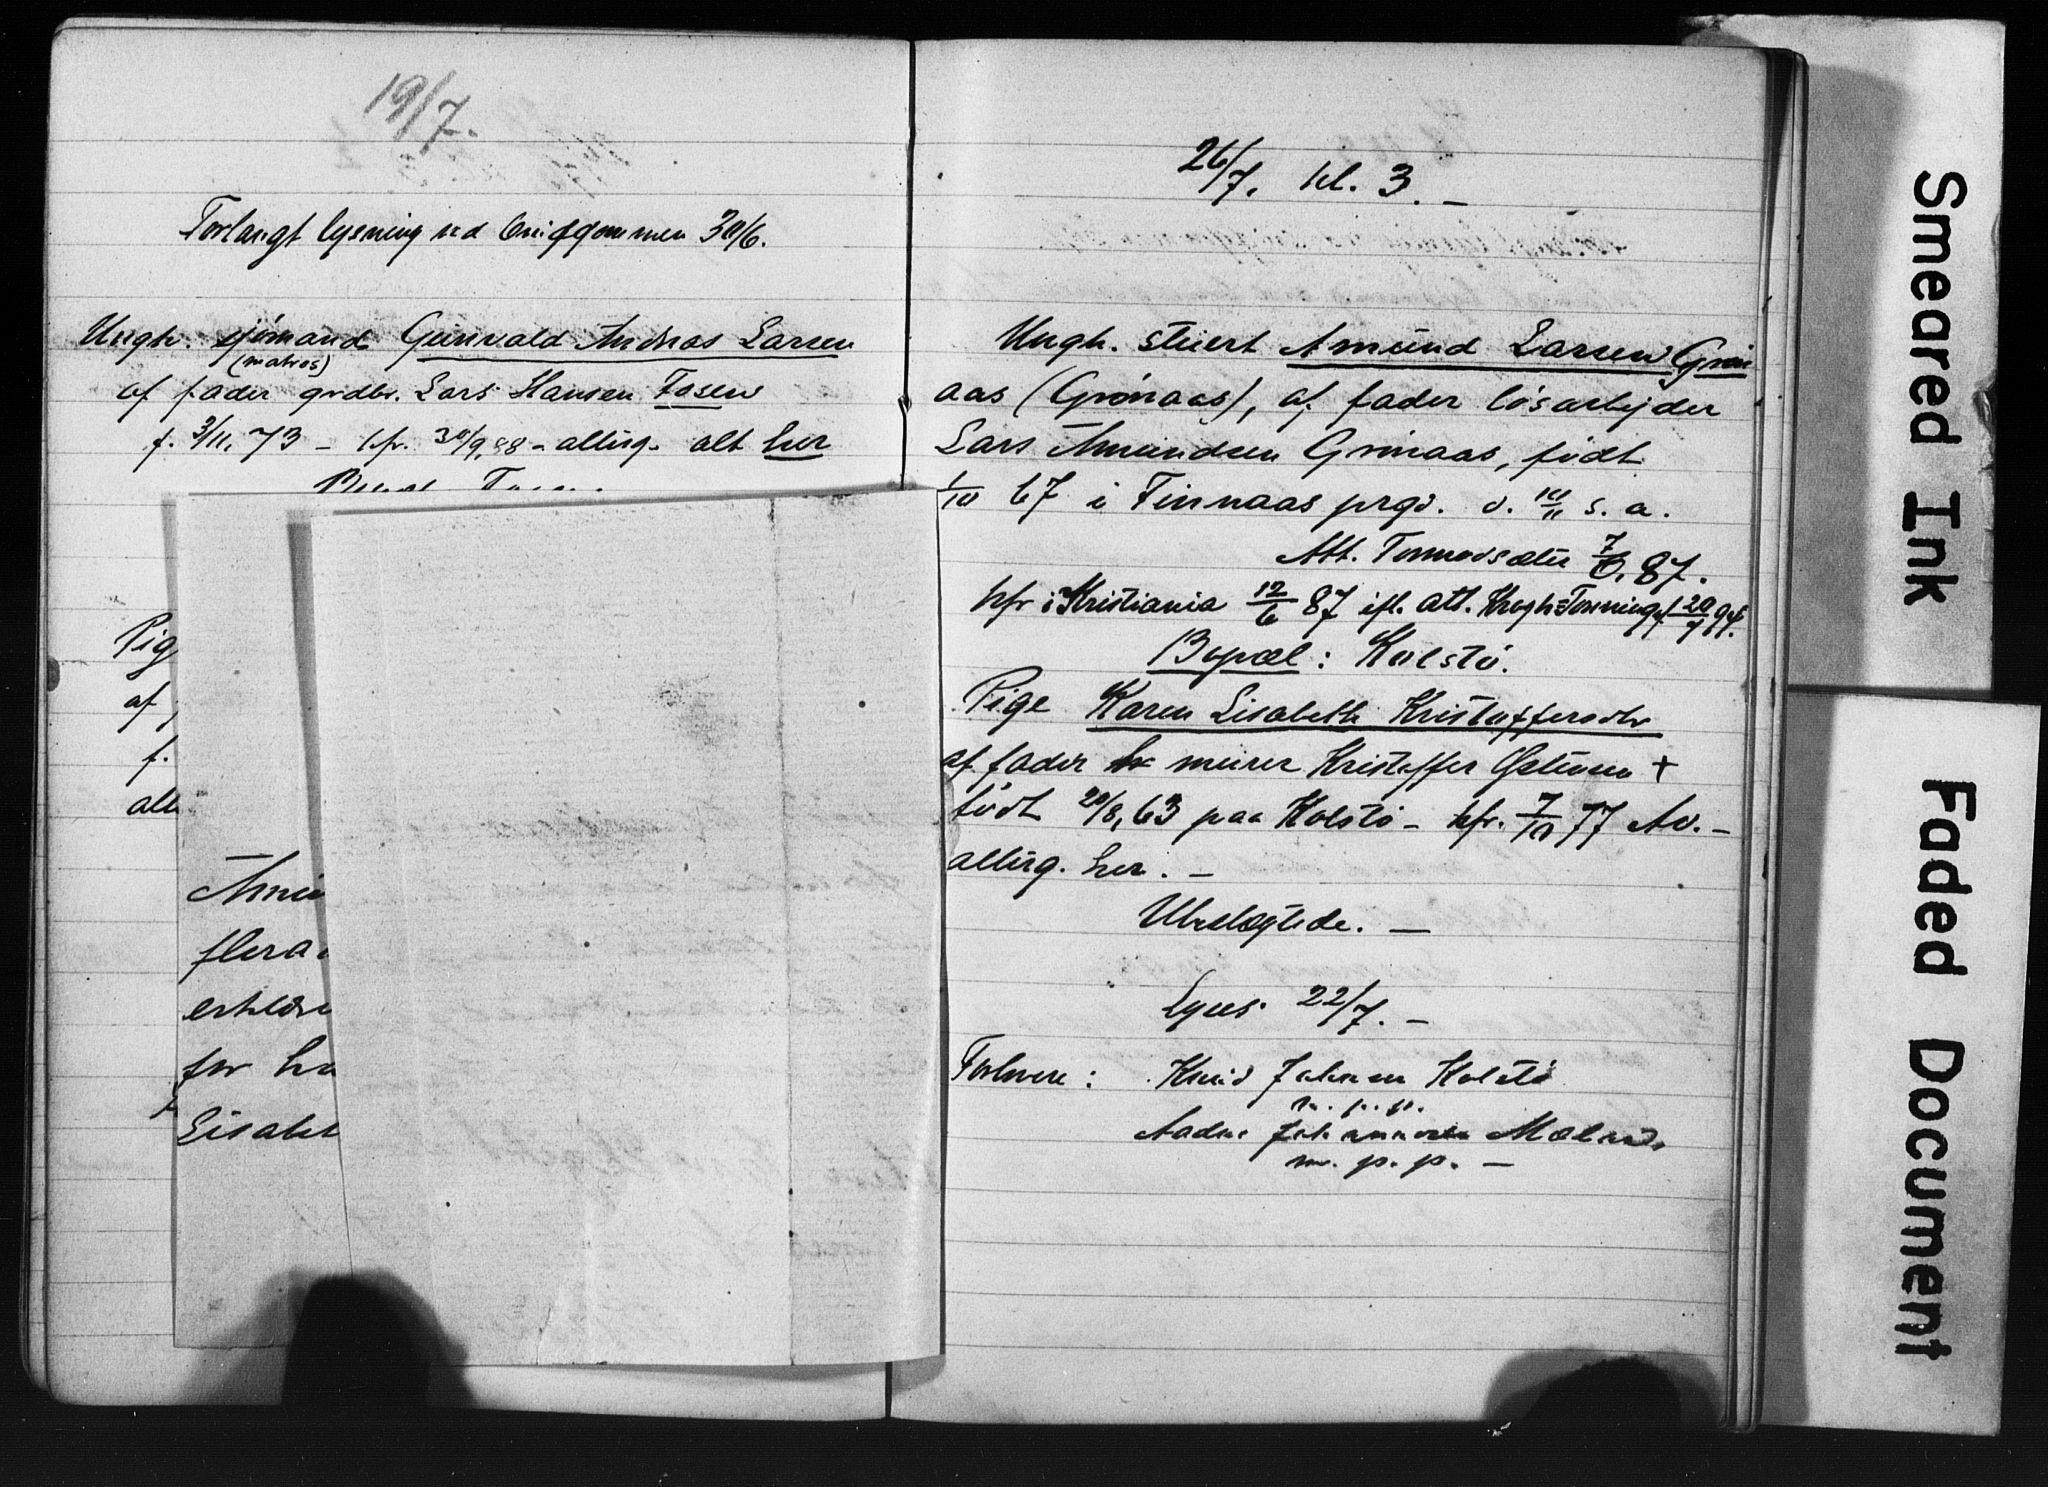 19/7.
Forlangt lysning ved brudgommen 30/6.
Ungk. sjømand Gunvald Andreas Larsen
(matros)
af fader grdbr. Lars Hansen Fosen
f. 3/11, 73 - kfr. 30/9, 88 - allirg. alt her
Pig
af
f.
all
flera
erklær
for ha
Lisabet
26/7. kl. 3. -
Ungk. stuert Amund Larsen Grøn
aas (Grønaas), af fader løsarbejder
Lars Amundsen Grønaas, født
1/10 67 i Finnaas prgd. d. 10/11 s. a.
Att. Tormodsæter 7/6, 87.
kfr i Kristiania 12/6 87 ifl. att. Krogh-Tonning af 20/7 94.
Bopæl: Kolstø.
Pige Karen Lisabeth Kristoffersdtr
af fader murer Kristoffer Østensen +
født 20/8, 63 paa Kolstø - kfr. 7/10 77 Av. -
allirg. her. -
Ubeslægtede. -
Lyses 22/7. -
Forlovere: Knud Johnsen Kolstø
m. p. p.
Aadne Johannesen Mæland
m. p. p. -
Smeared Ink
Faded Document